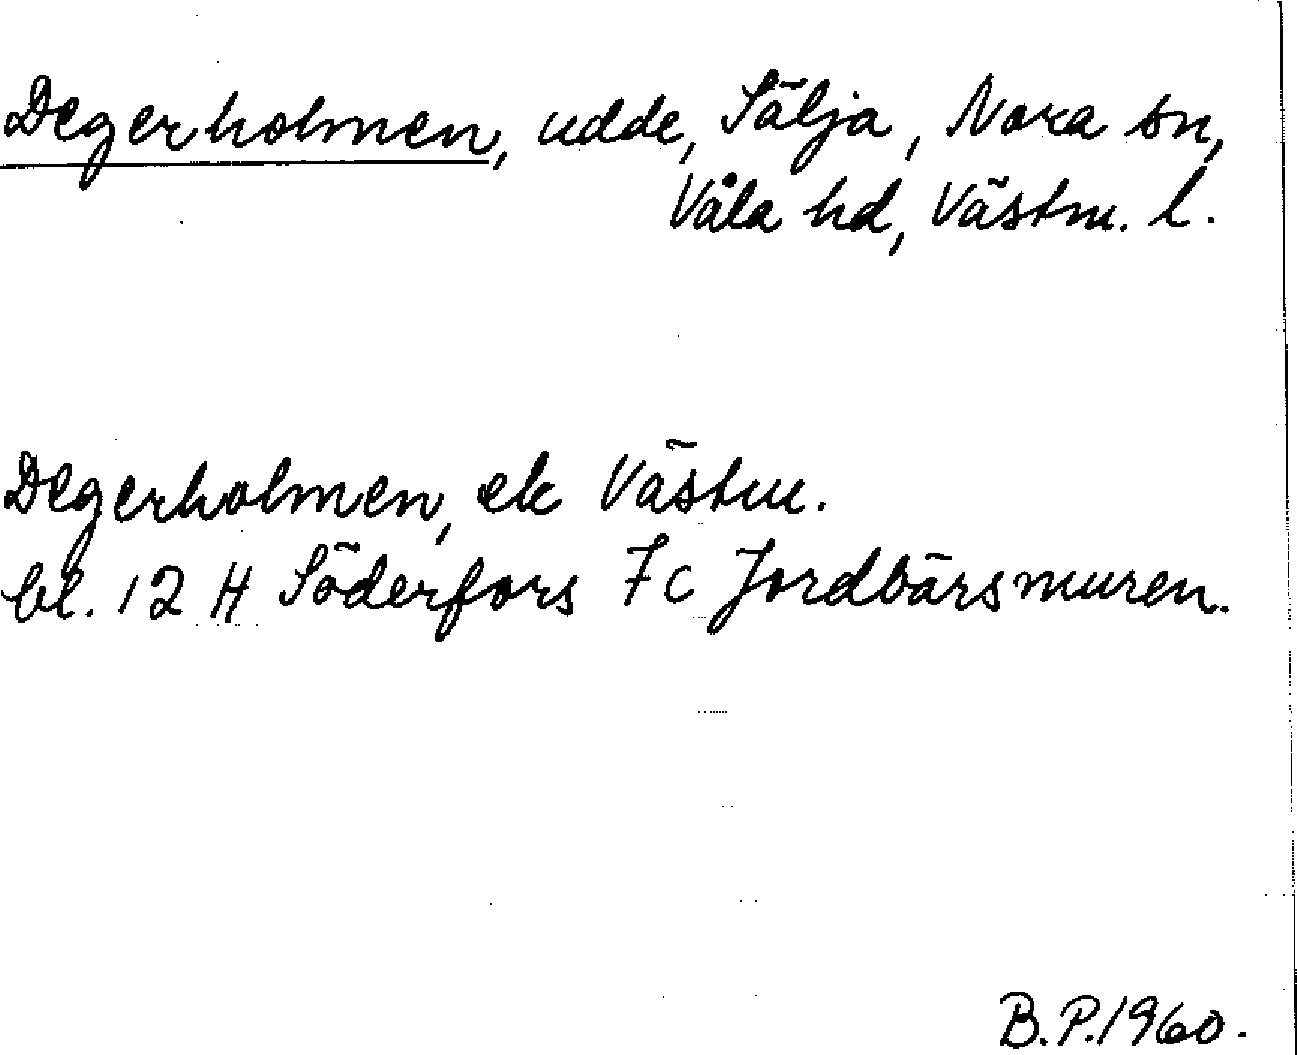 Degerholmen, udde, Sälja, Nora sn,
Våla hd, Västm. l.
Degerholmen, ek Västm.
bl. 12 H Söderfors 7c Jordbärsmuren.
B.P. 1960.